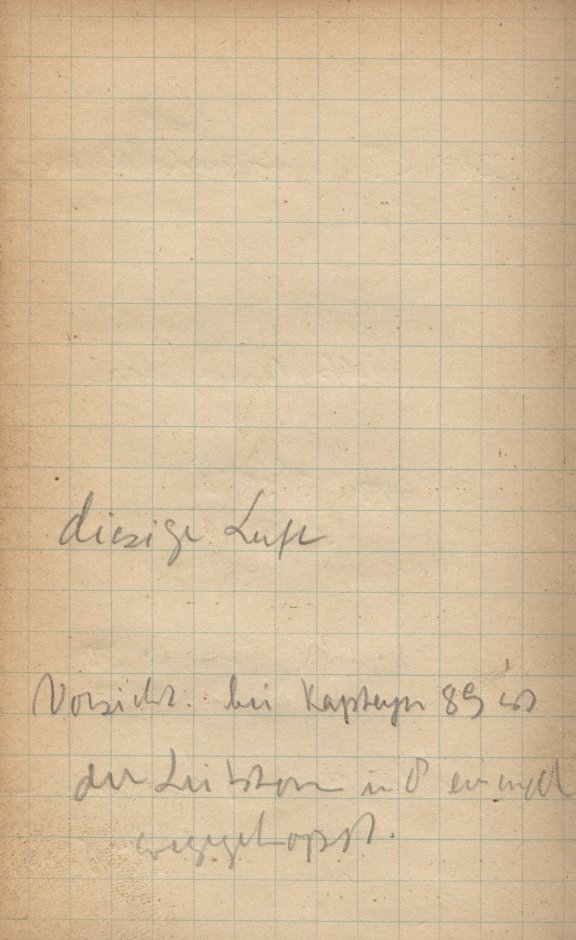 diesige Luft
Vorsicht. bei Kapteyn 89 ist
der Leitstern in δ einmal
weggehopst.